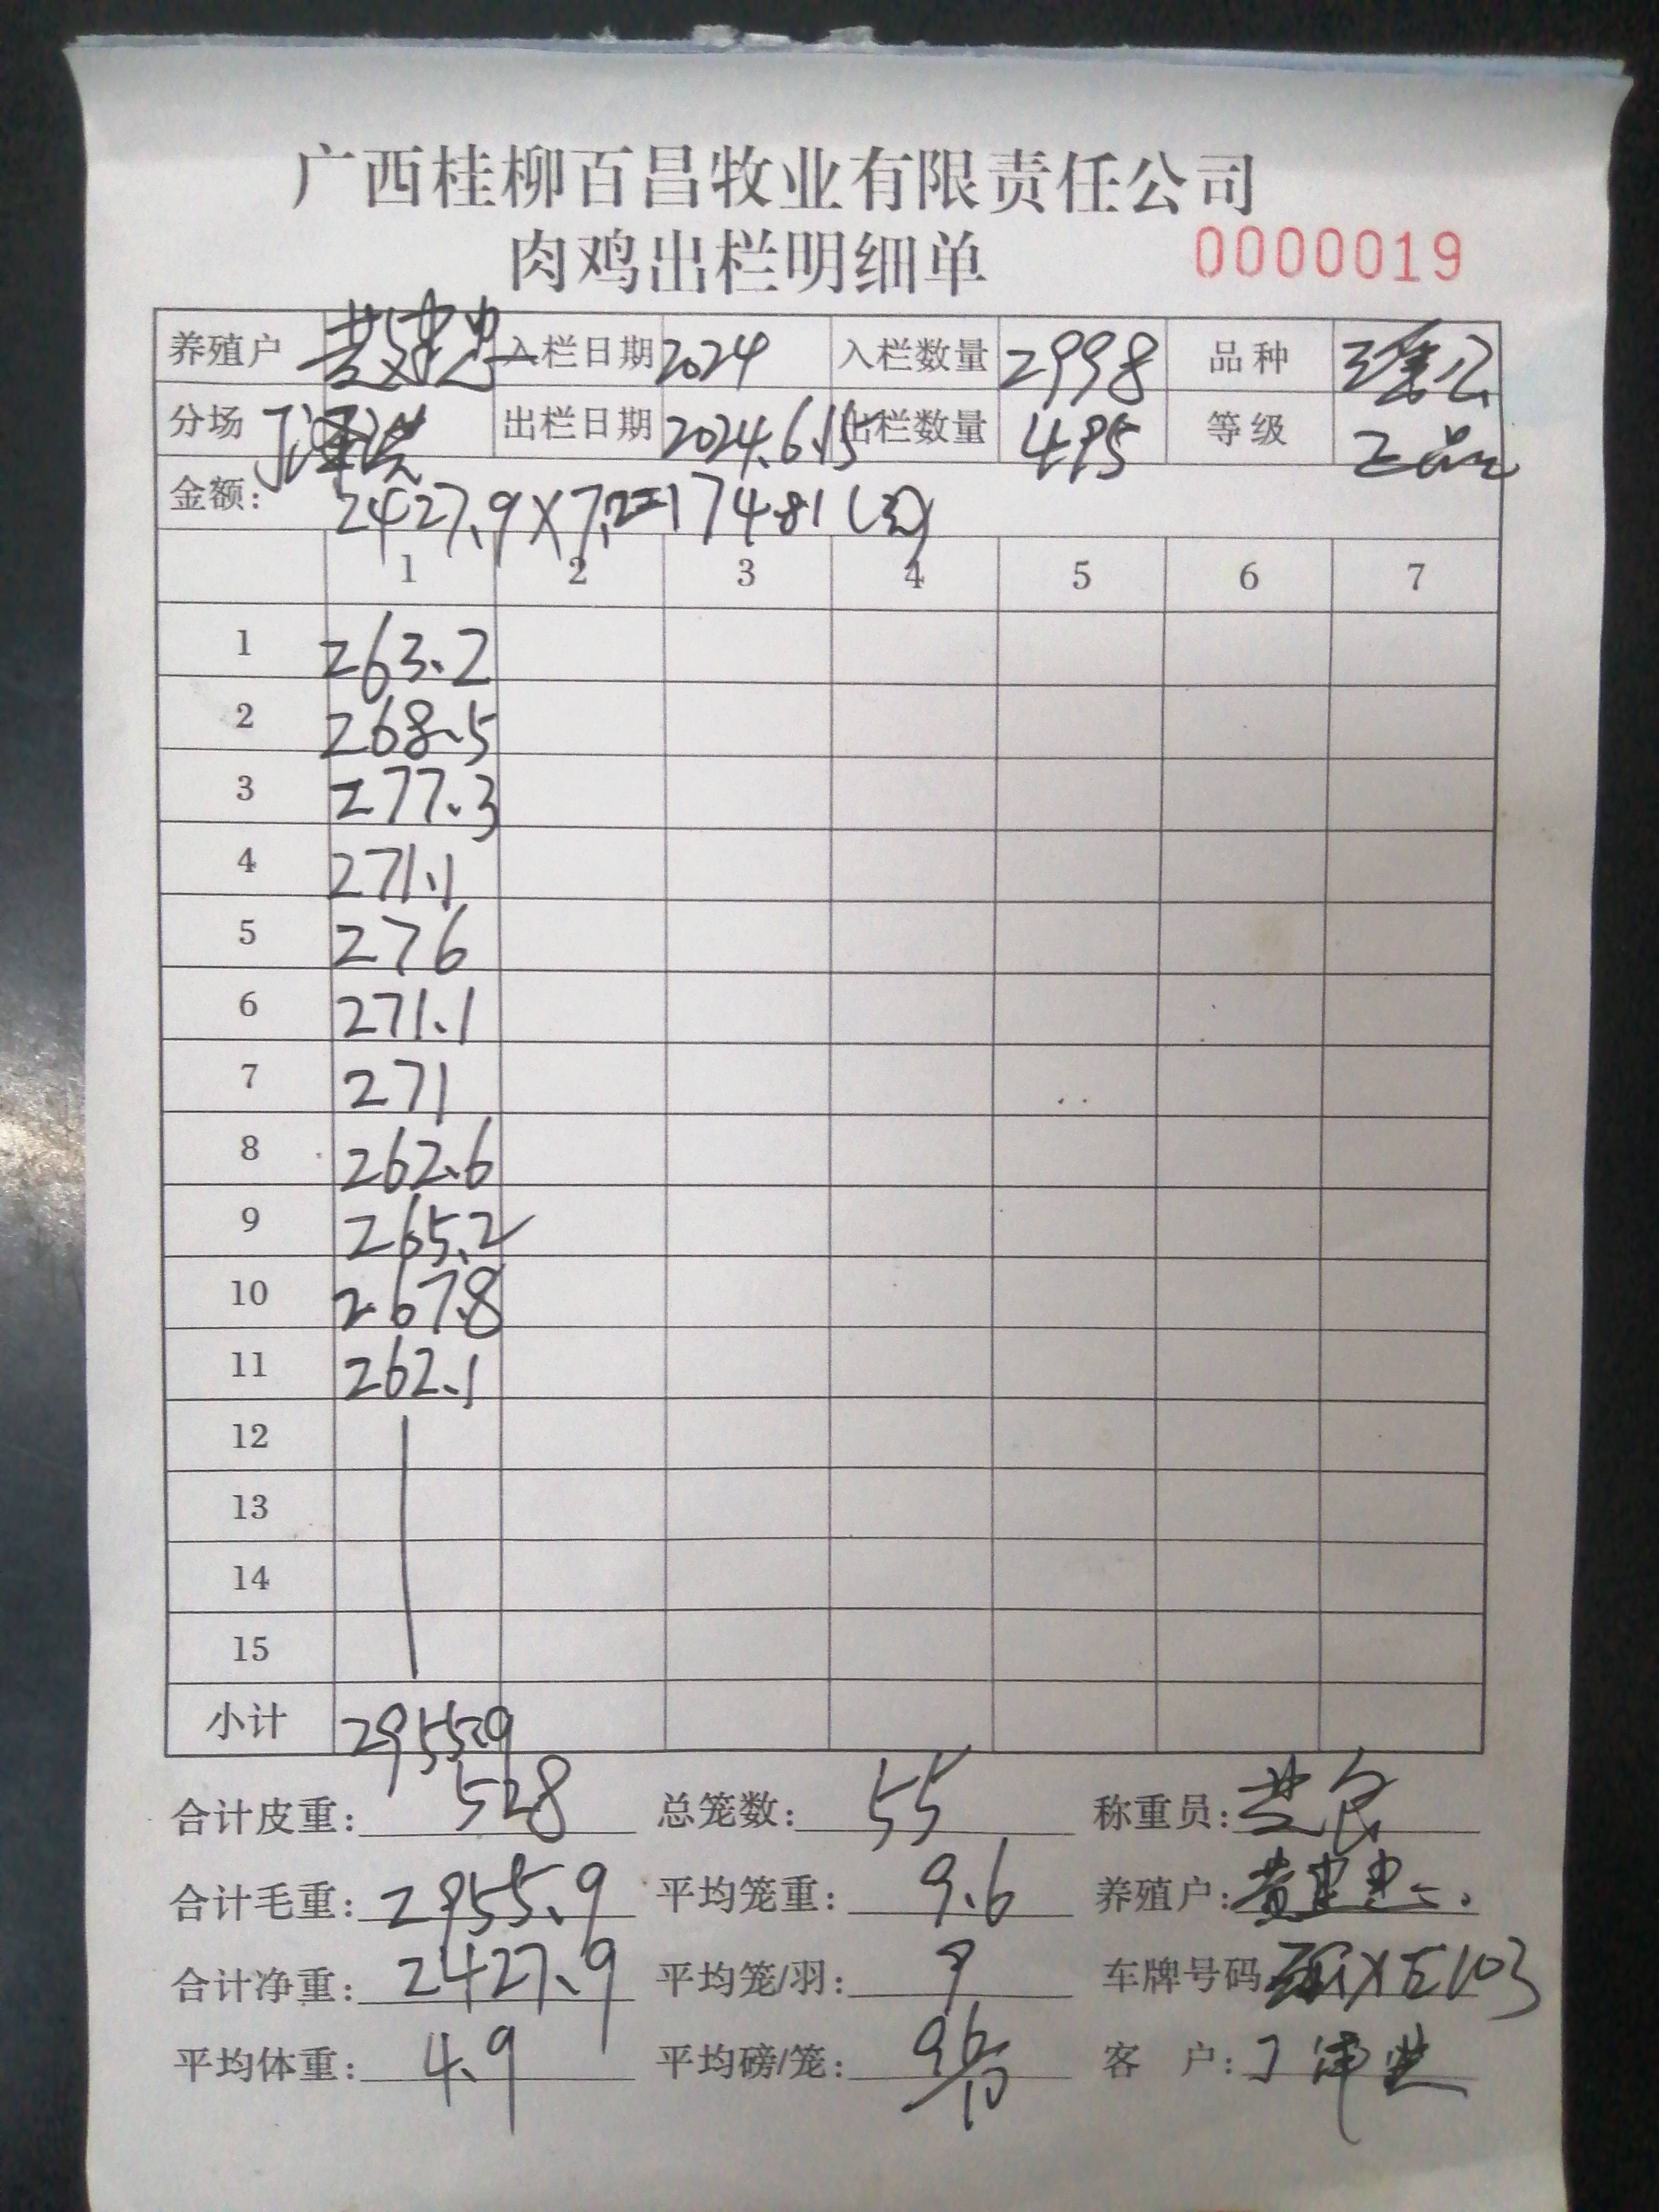 广西桂柳百昌牧业有限责任公司
肉鸡出栏明细单 0000019
养殖户 黄建忠 入栏日期 2024 入栏数量 2998 品种
分场 出栏日期 2024.6.15 出栏数量 495 等级 正品
金额: 2427.9×7.2=17481(元)
1 2 3 4 5 6 7
1 263.2
2 268.5
3 277.3
4 271.1
5 276
6 271.1
7 271
8 262.6
9 265.2
10 267.8
11 262.1
12
13
14
15
小计 2955.9
合计皮重: 528 总笼数: 55 称重员:
合计毛重: 2955.9 平均笼重: 9.6 养殖户: 黄建忠
合计净重: 2427.9 平均笼/羽: 9 车牌号码
平均体重: 4.9 平均磅/笼: 客 户: